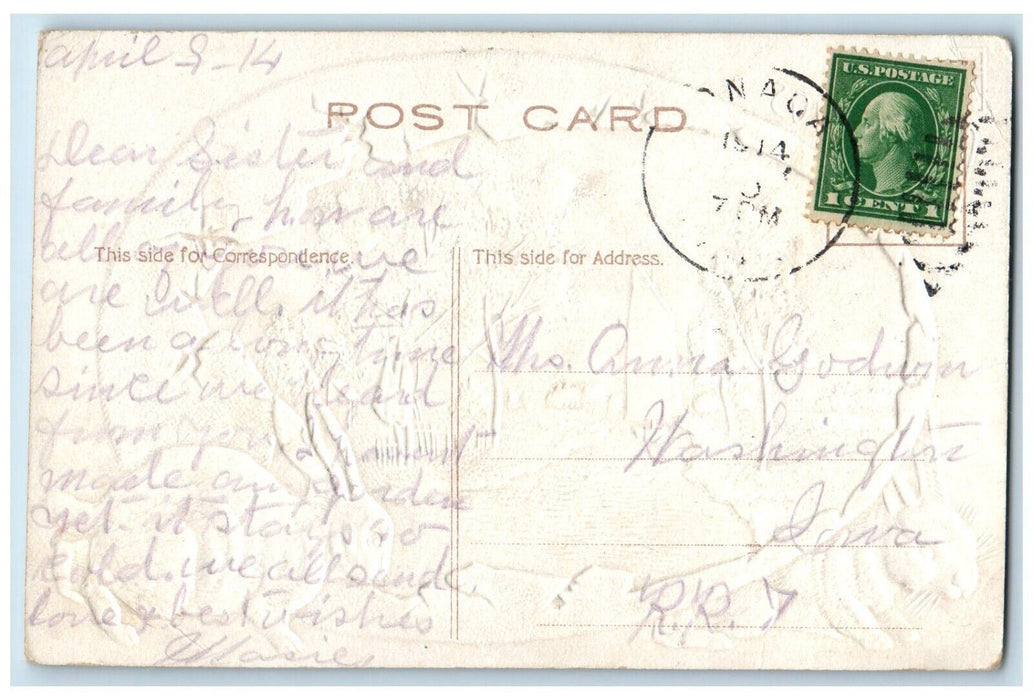 april 9-14
POST CARD
ONAGA
1914
7 PM
U.S. POSTAGE
1 CENT 1
Dear Sister and
family how are
all we
are well. it has
been a long time
since we heard
from you I havent
made any garden
yet. it stays so
cold. we all send
love & best wishes
This side for Correspondence.
This side for Address.
Mrs. Anna Godwin
Washington
Iowa
R.R. 7